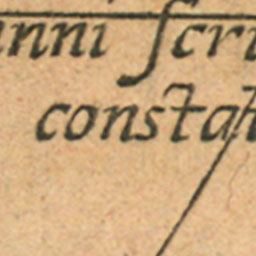 anni ſcri
constat